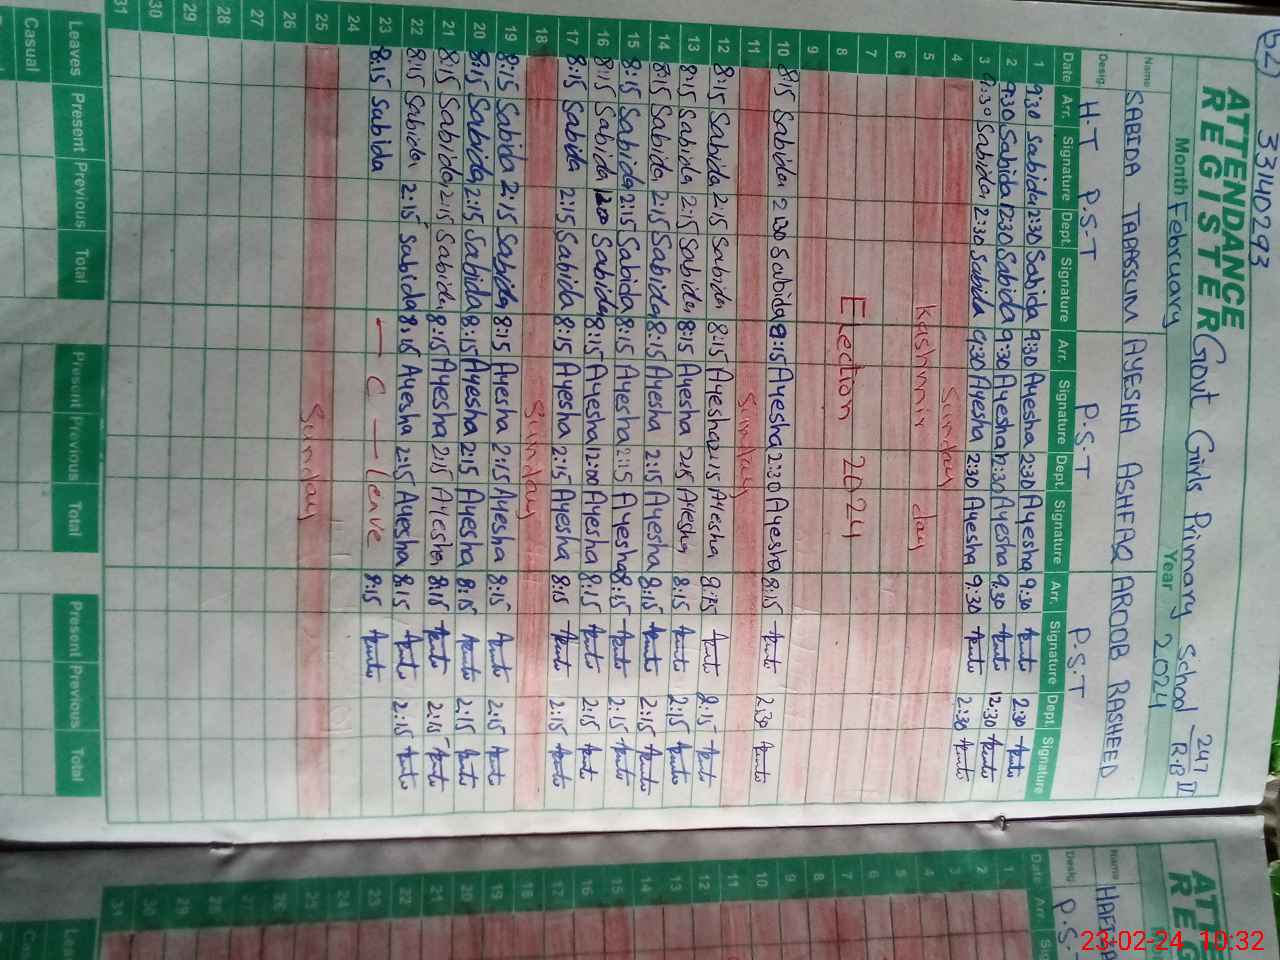 (52)
33140293
ATTENDANCE REGISTER
Govt Girls Primary School 247/R.B II
Month February Year 2024
Name SABIDA TABASSUM AYESHA ASHFAQ AROOB RASHEED
Desig. H-T P.S-T P.S.T P.S.T
Date Arr. Signature Dept. Signature Arr. Signature Dept. Signature Arr. Signature Dept. Signature
1 9:30 Sabida 2:30 Sabida 9:30 Ayesha 2:30 Ayesha 9:30 2:30
2 9:30 Sabida 12:30 Sabida 9:30 Ayesha 12:30 Ayesha 9:30 12:30
3 9:30 Sabida 2:30 Sabida 9:30 Ayesha 2:30 Ayesha 9:30 2:30
4 Sunday
5 Kashmir day
6
7
8 Election 2024
9
10 8:15 Sabida 2:30 Sabida 8:15 Ayesha 2:30 Ayesha 8:15 2:30
11 Sunday
12 8:15 Sabida 2:15 Sabida 8:15 Ayesha 2:15 Ayesha 8:15 2:15
13 8:15 Sabida 2:15 Sabida 8:15 Ayesha 2:15 Ayesha 8:15 2:15
14 8:15 Sabida 2:15 Sabida 8:15 Ayesha 2:15 Ayesha 8:15 2:15
15 8:15 Sabida 2:15 Sabida 8:15 Ayesha 2:15 Ayesha 8:15 2:15
16 8:15 Sabida 12:00 Sabida 8:15 Ayesha 12:00 Ayesha 8:15 2:15
17 8:15 Sabida 2:15 Sabida 8:15 Ayesha 2:15 Ayesha 8:15 2:15
18 Sunday
19 8:15 Sabida 2:15 Sabida 8:15 Ayesha 2:15 Ayesha 8:15 2:15
20 8:15 Sabida 2:15 Sabida 8:15 Ayesha 2:15 Ayesha 8:15 2:15
21 8:15 Sabida 2:15 Sabida 8:15 Ayesha 2:15 Ayesha 8:15 2:15
22 8:15 Sabida 2:15 Sabida 8:15 Ayesha 2:15 Ayesha 8:15 2:15
23 8:15 Sabida — C — leave 8:15
24
25 Sunday
26
27
28
29
30
31
Leaves Present Previous Total Present Previous Total Present Previous Total
Casual
ATTE
REG
Name
Desig. P.S.
Date Arr.
1
2
3
4
5
6
7
8
9
10
11
12
13
14
15
16
17
18
19
20
21
22
23
24
25
26
27
28
29
30
31
23-02-24 10:32